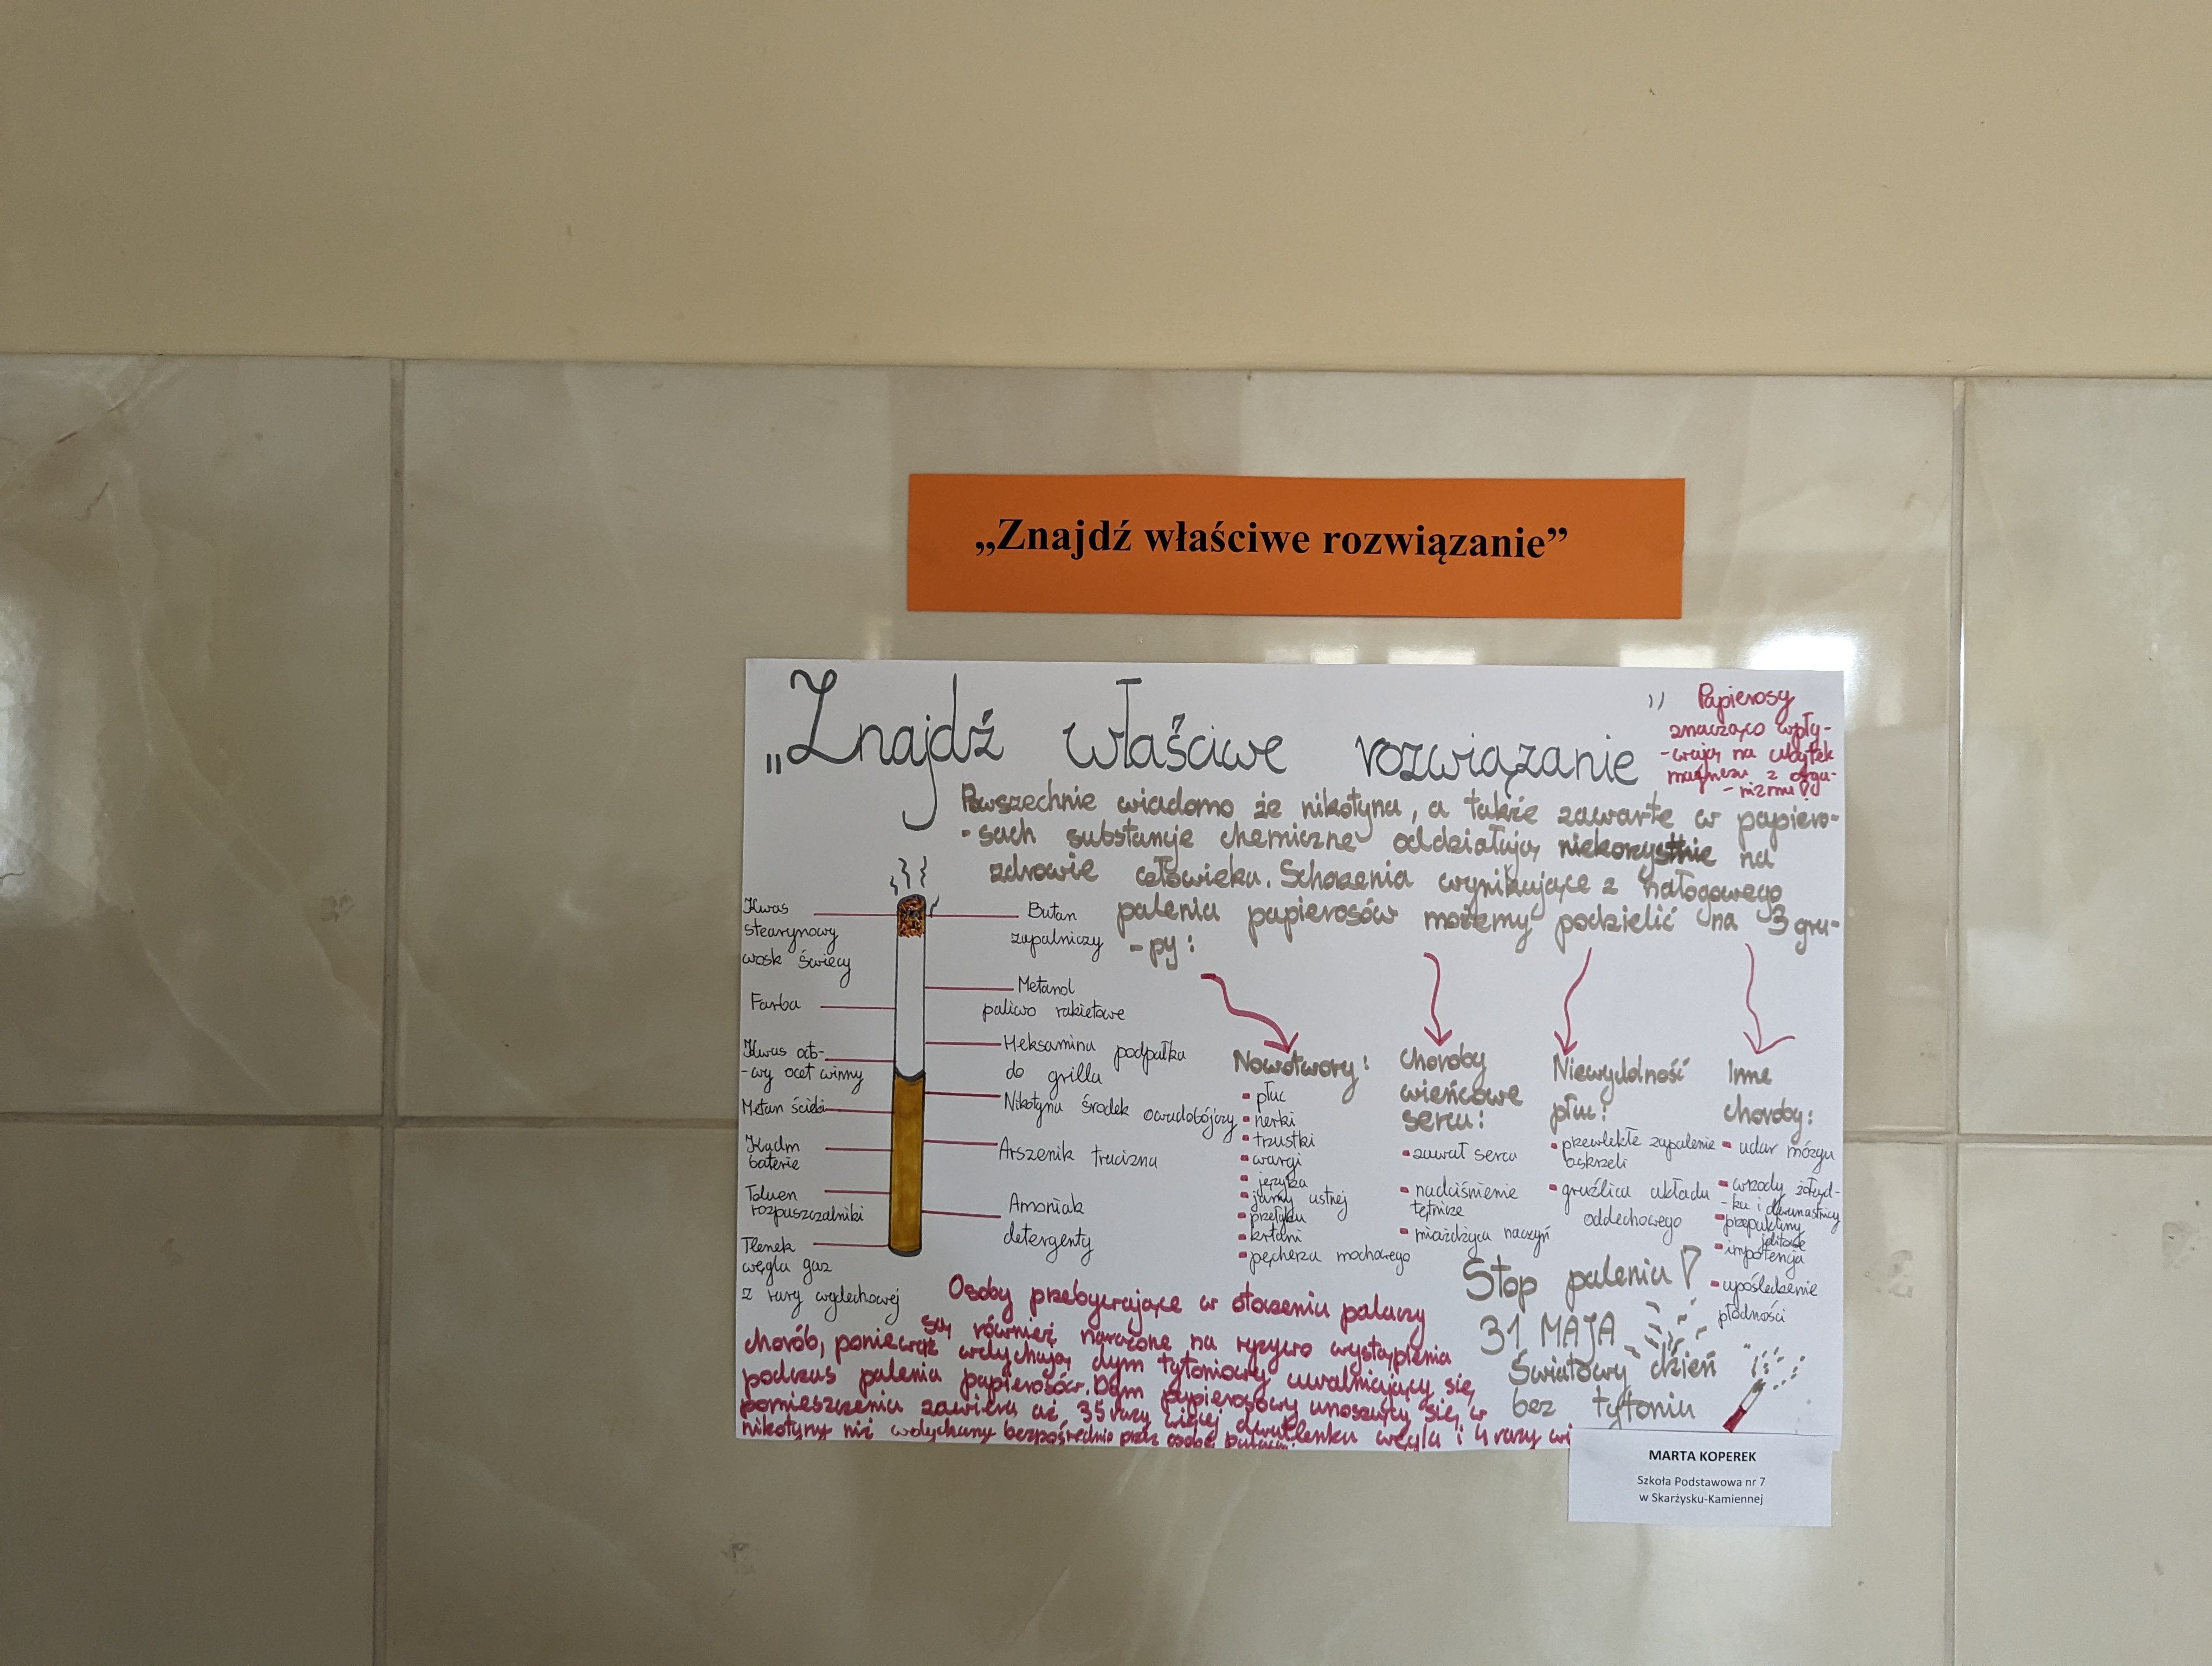 „Znajdź właściwe rozwiązanie”
„Znajdź właściwe rozwiązanie
”
Papierosy
znacząco wpły-
-wają na ubytek
magnezu z orga-
-nizmu!
Powszechnie wiadomo że nikotyna, a także zawarte w papiero-
-sach substancje chemiczne oddziałują niekorzystnie na
zdrowie człowieka. Schorzenia wynikające z nałogowego
palenia papierosów możemy podzielić na 3 gru-
-py:
Kwas
stearynowy
wosk świecy
Farba
Kwas octo-
-wy ocet winny
Metan ścieki
Kadm
baterie
Toluen
rozpuszczalniki
Tlenek
węgla gaz
z rury wydechowej
Butan
zapalniczy
Metanol
paliwo rakietowe
Heksamina podpałka
do grilla
Nikotyna środek owadobójczy
Arszenik trucizna
Amoniak
detergenty
Nowotwory:
płuc
nerki
trzustki
wargi
języka
jamy ustnej
przełyku
krtani
pęcherza moczowego
Choroby
wieńcowe
serca:
zawał serca
nadciśnienie
tętnicze
miażdżyca naczyń
Niewydolność
płuc:
przewlekłe zapalenie
oskrzeli
gruźlica układu
oddechowego
Inne
choroby:
udar mózgu
wrzody żołąd-
-ka i dwunastnicy
przepukliny
jelitowe
impotencja
upośledzenie
płodności
Stop paleniu!
31 MAJA
Światowy dzień
bez tytoniu
Osoby przebywające w otoczeniu palaczy
są również narażone na ryzyko wystąpienia
chorób, ponieważ wdychają dym tytoniowy uwalniający się
podczas palenia papierosów. Dym papierosowy unoszący się w
pomieszczeniu zawiera aż 35 razy więcej dwutlenku węgla i 4 razy wi
nikotyny niż wdychany bezpośrednio przez osobę palącą.
MARTA KOPEREK
Szkoła Podstawowa nr 7
w Skarżysku-Kamiennej